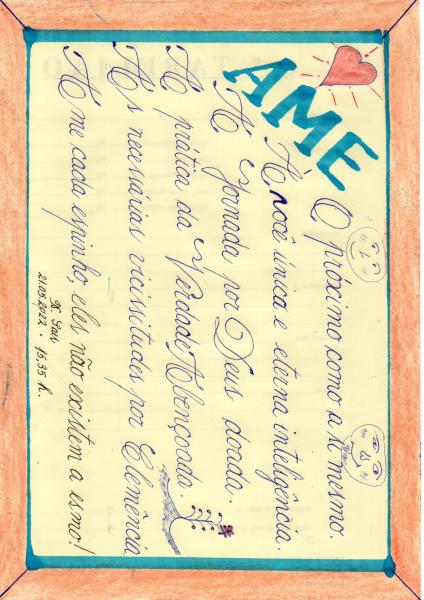 AME
O próximo como a si mesmo.
À você única e eterna inteligência.
A Jornada por Deus doada.
A prática da Verdade Abençoada.
As necessárias vicissitudes por Clemência.
Ame cada espinho, eles não existem a esmo!
21.05.2022 - 15.35 h.